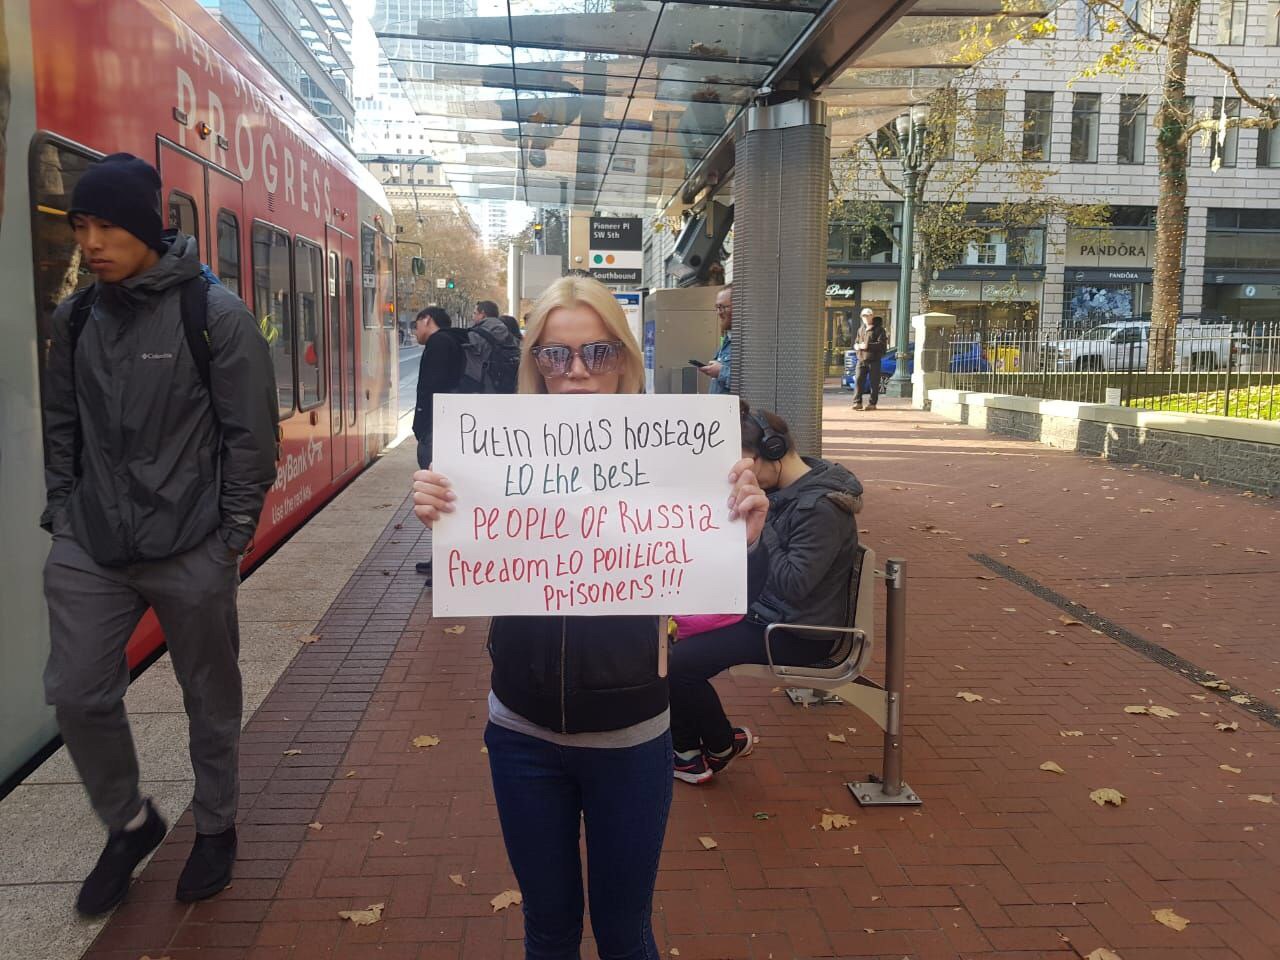 PROGRESS
Pioneer Pl
SW 5th
Southbound
PANDÖRA
PANDÖRA
Columbia
Putin holds hostage
to the Best
PEOPLE OF Russia
freedom to political
prisoners!!!
KeyBank
Use the red key.